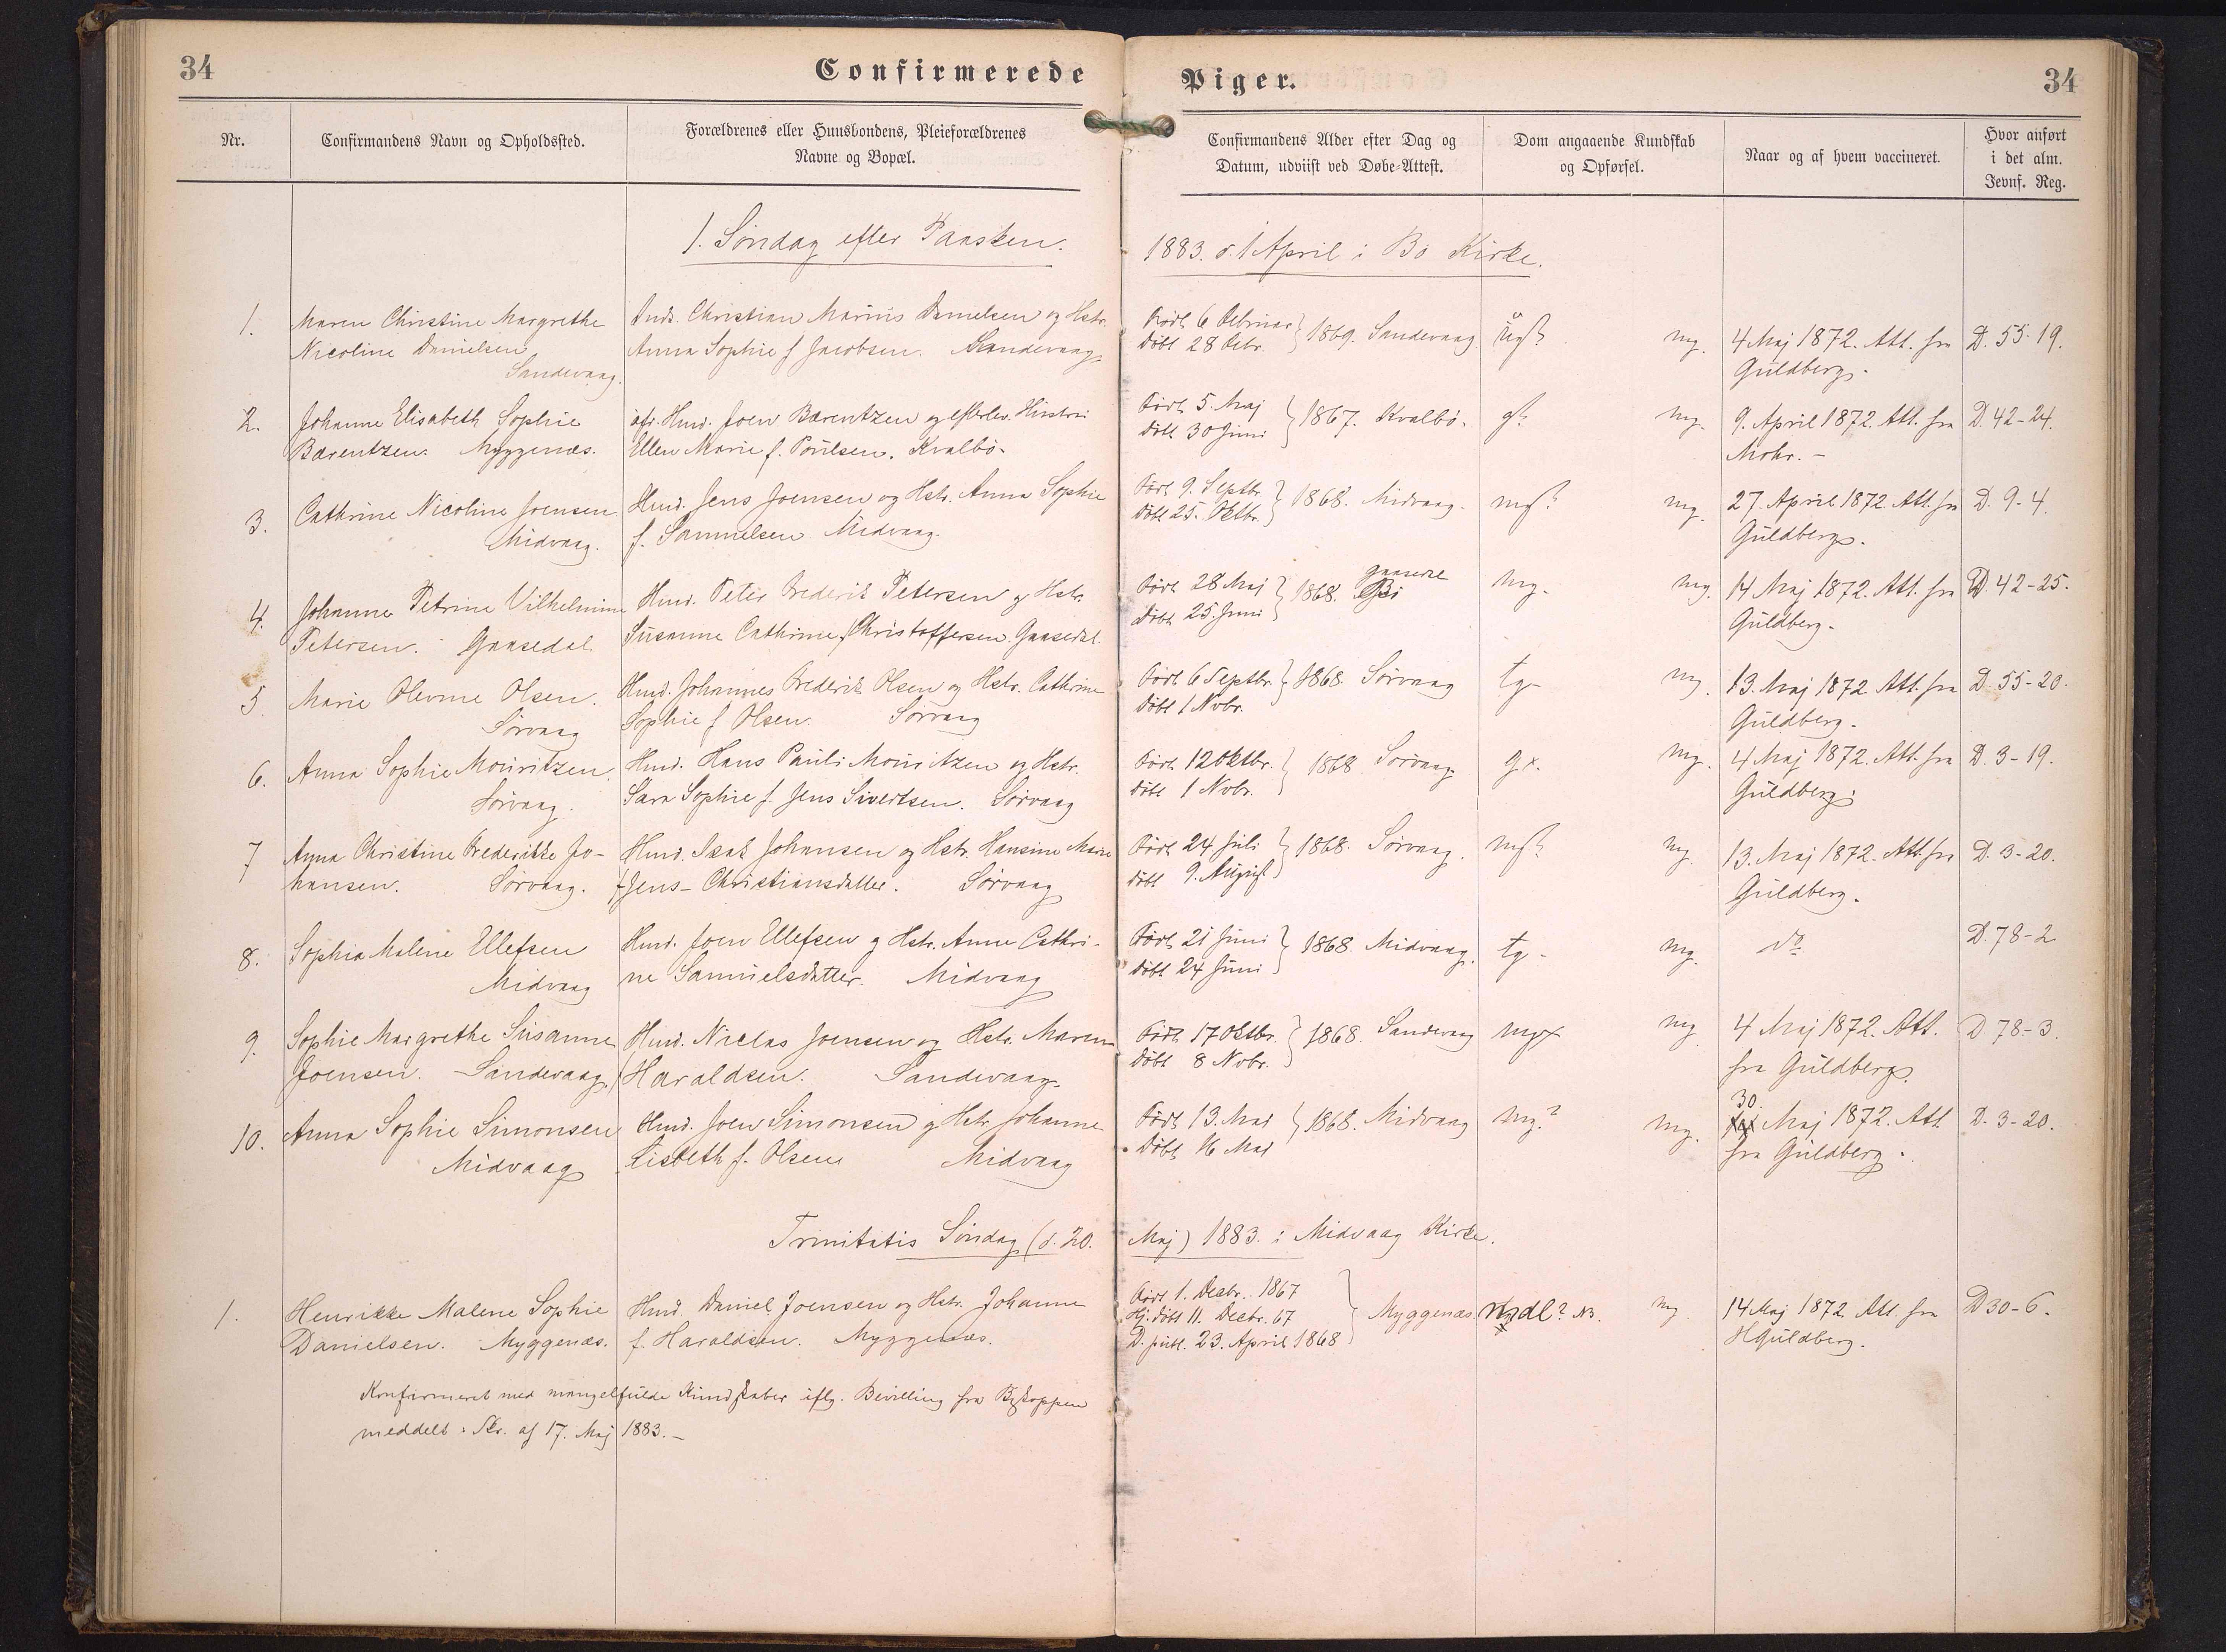 34
Confirmerede
Piger.
34
Nr.
Confirmandens Navn og Opholdssted.
Forældrenes eller Huusbondens, Pleieforældrenes
Navne og Bopæl.
Confirmandens Alder efter Dag og
Datum, udviist ved Døbe-Attest.
Dom angaaende Kundskab
og Opførsel.
Naar og af hvem vaccineret.
Hvor anført
i det alm.
Jevnf. Reg.
1. Søndag efter Paasken.
1883. d. 1 April i Bø Kirke.
1.
Maren Christine Margrethe
Nicoline Danielsen
Sandevaag.
Christian Marius Danielsen og Hstr.
Anna Sophie f Jacobsen. Sandevaag
Født 6 Februar
Døbt 28 Febr.
1869. Sandevaag
mg.
4 Maj 1872. Att. fra
Guldberg.
D. 55-19.
2.
Johanne Elisabeth Sophie
Barentzen. Myggenæs.
afd. Hmd. Joen Barentzen og efterlev. Hustru
Ellen Marie f. Poulsen. Kvalbø.
Født 5. Maj
Døbt 30 Juni
1867. Kvalbø.
g?
mg.
9. April 1872. Att. fra
Mohr. -
D. 42-24.
3.
Cathrine Nicoline Joensen
Midvaag.
Hmd. Jens Joensen og Hstr. Anna Sophie
f. Samuelsen Midvaag.
Født 9. Septbr.
Døbt 25. Oktbr.
1868. Midvaag.
mg?
mg.
27. April 1872. Att. fra
Guldberg.
D. 9-4.
4.
Johanne Petrine Vilhelmine
Petersen. Gaasedal
Hmd. Peter Frederik Petersen og Hstr.
Susanne Cathrine f Christoffersen. Gaasedal.
Født 28 Maj
Døbt 25. Juni
1868. Bø
Gaasedal
mg.
mg.
14 Maj 1872. Att. fra
Guldberg.
D 42-25.
5.
Marie Olevine Olsen.
Sørvaag
Hmd. Johannes Frederik Olsen og Hstr. Cathrine
Sophie f Olsen. Sørvaag
Født 6 Septbr.
Døbt 1 Nvbr.
1868. Sørvaag
tg-
mg.
13. Maj 1872. Att. fra
Guldberg.
D. 55-20.
6.
Anna Sophie Mouritzen
Sørvaag.
Hmd. Hans Pauli Mouritzen og Hstr.
Sara Sophie f. Jens Sivertsen. Sørvaag
Født 12 Oktbr.
Døbt 1 Nvbr.
1868 Sørvaag.
gx.
mg.
4 Maj 1872. Att. fra
Guldberg.
D. 3-19.
7
Anna Christine Frederikke Jo-
hansen. Sørvaag.
Hmd. Isak Johansen og Hstr. Hansine Marie
f Jens-Christiansdatter. Sørvaag
Født 24 Juli
Døbt 9. August
1868. Sørvaag.
mg?
mg.
13. Maj 1872. Att. fra
Guldberg.
D. 3-20.
8.
Sophia Malene Ellefsen
Midvaag
Hmd. Joen Ellefsen og Hstr. Anna Cathri-
ne Samuelsdatter. Midvaag
Født 21 Juni
Døbt 24 Juni
1868. Midvaag.
tg-
mg.
do
D. 78-2
9.
Sophie Margrethe Susanne
Joensen. Sandevaag.
Hmd. Niclas Joensen og Hstr. Maren
f Haraldsen. Sandevaag.
Født 17 Oktbr.
Døbt 8 Nvbr.
1868. Sandevaag
mgx
mg
4 Maj 1872. Att.
fra Guldberg.
D 78-3.
10.
Anna Sophie Simonsen
Midvaag
Hmd. Joen Simonsen og Hstr. Johanne
Lisbeth f. Olsen Midvaag
Født 13. Mai
Døbt 16 Mai
1868. Midvaag
mg?
mg.
30.
Maj 1872. Att
fra Guldberg.
D. 3-20.
Trinitatis Søndag (d. 20.
Maj) 1883. i Midvaag Kirke.
1.
Henrikke Malene Sophie
Danielsen. Myggenæs.
Hmd. Daniel Joensen og Hstr. Johanne
f. Haraldsen. Myggenæs.
Født 1. Decbr. 1867
Hj. døbt 11. Decbr. 67
D. publ. 23. April 1868
Myggenæs.
mdl? NB.
mg
14 Maj 1872 Att fra
HGuldberg.
D 30-6.
Konfirmeret med mangelfulde Kundskaber iflg. Bevilling fra Biskoppen
meddelt i Skr. af 17. Maj 1883.-